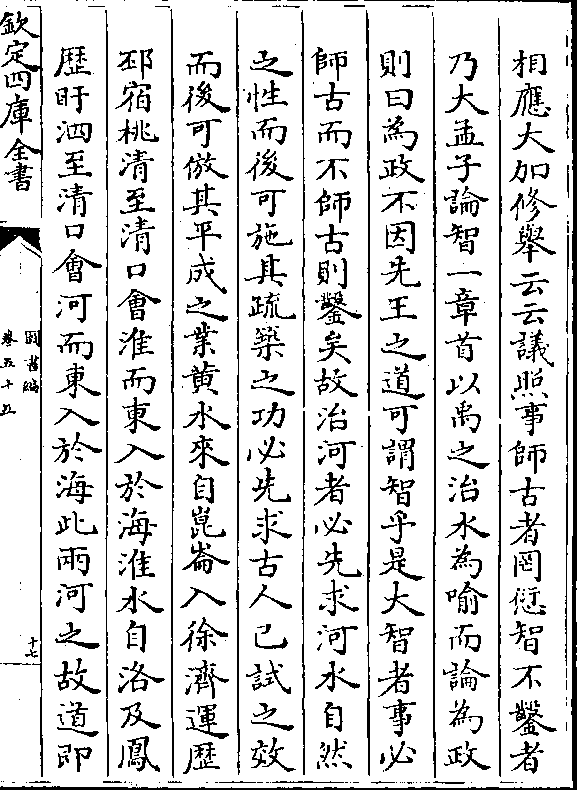 相應大加修舉云云議照事師古者罔愆智不鑿者
乃大孟子論智一章首以禹之治水為喻而論為政
則曰為政不因先王之道可謂智乎是大智者事必
師古而不師古則鑿矣故治河者必先求河水自然
之性而後可施其疏築之功必先求古人已試之效
而後可倣其平成之業黄水來自崑崙入徐濟運歴
邳宿桃清至清口會淮而東入於海淮水自洛及鳳
歴盱泗至清口會河而東入於海此兩河之故道即
欽定四庫全書
圖書編
卷五十五
十七